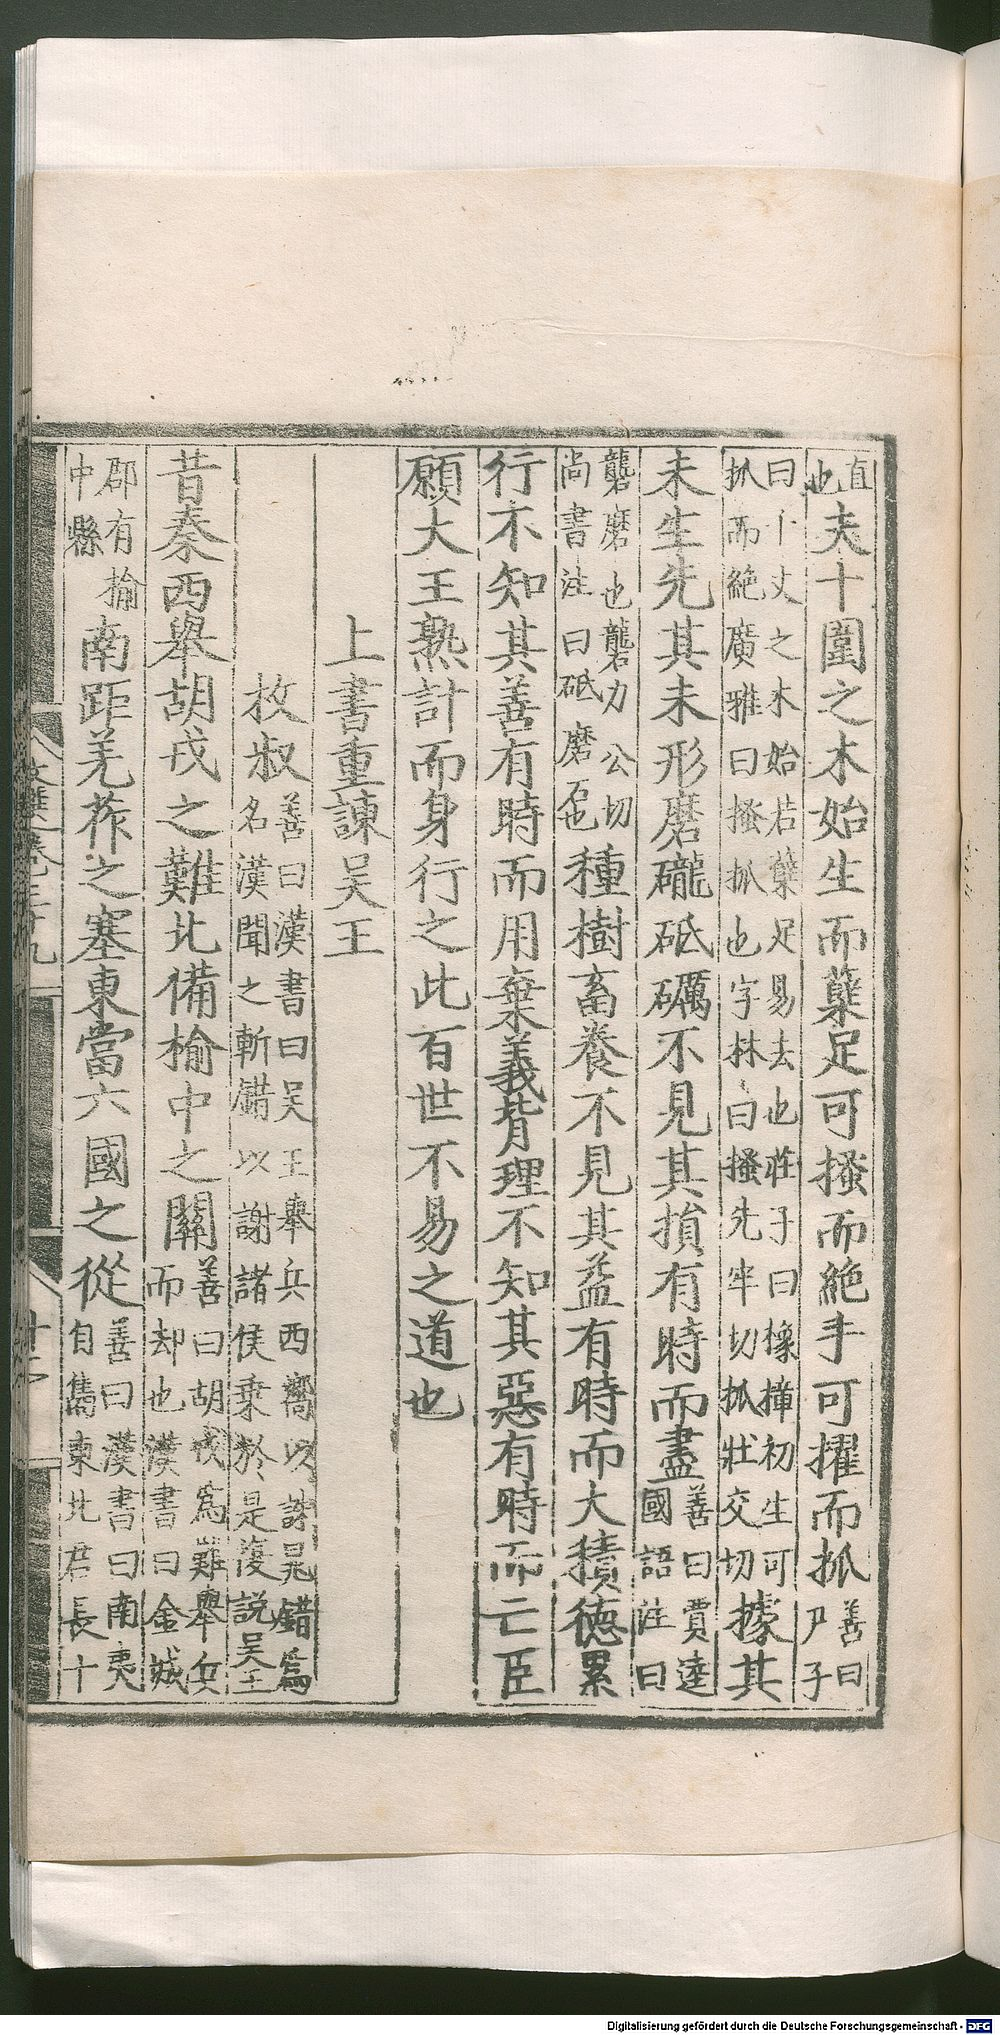 直也夫十圍之木始生而蘖足可搔而絶手可擢而抓善曰尹子
曰十丈之木始若蘖足易去也莊子曰橡樟初生可
抓而絶廣雅曰搔抓也字林曰搔先牢切抓壯交切據其
未生先其未形磨礲砥礪不見其損有時而盡善曰賈逵國語注曰
礱磨也礱力公切尚書注曰砥磨石也種樹畜養不見其益有時而大積德累
行不知其善有時而用棄義背理不知其惡有時而亡臣
願大王熟計而身行之此百世不易之道也
上書重諫吳王
枚叔善曰漢書曰吳王舉兵西嚮以誅晁錯爲
名漢聞之斬錯以謝諸侯乘於是復説吳王
昔秦西舉胡戎之難北備榆中之關善曰胡戎爲難舉兵而却也漢書曰金城
郡有榆中縣南距羌莋之塞東當六國之從善曰漢書曰南夷自巂東北君長十
文選卷三十九
Digitalisierung gefördert durch die Deutsche Forschungsgemeinschaft - DFG